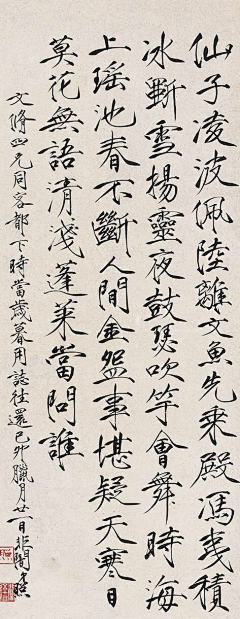 仙子凌波佩陸離文魚先乘殿馮夷積
冰斲雪揚靈夜鼓瑟吹竽會舞時海
上瑤池春不斷人間金盌事堪疑天寒日
莫花無語清淺蓬萊當問誰
文脩四兄同客都下時當歲暮用誌往還己卯臘月廿一日非闇照